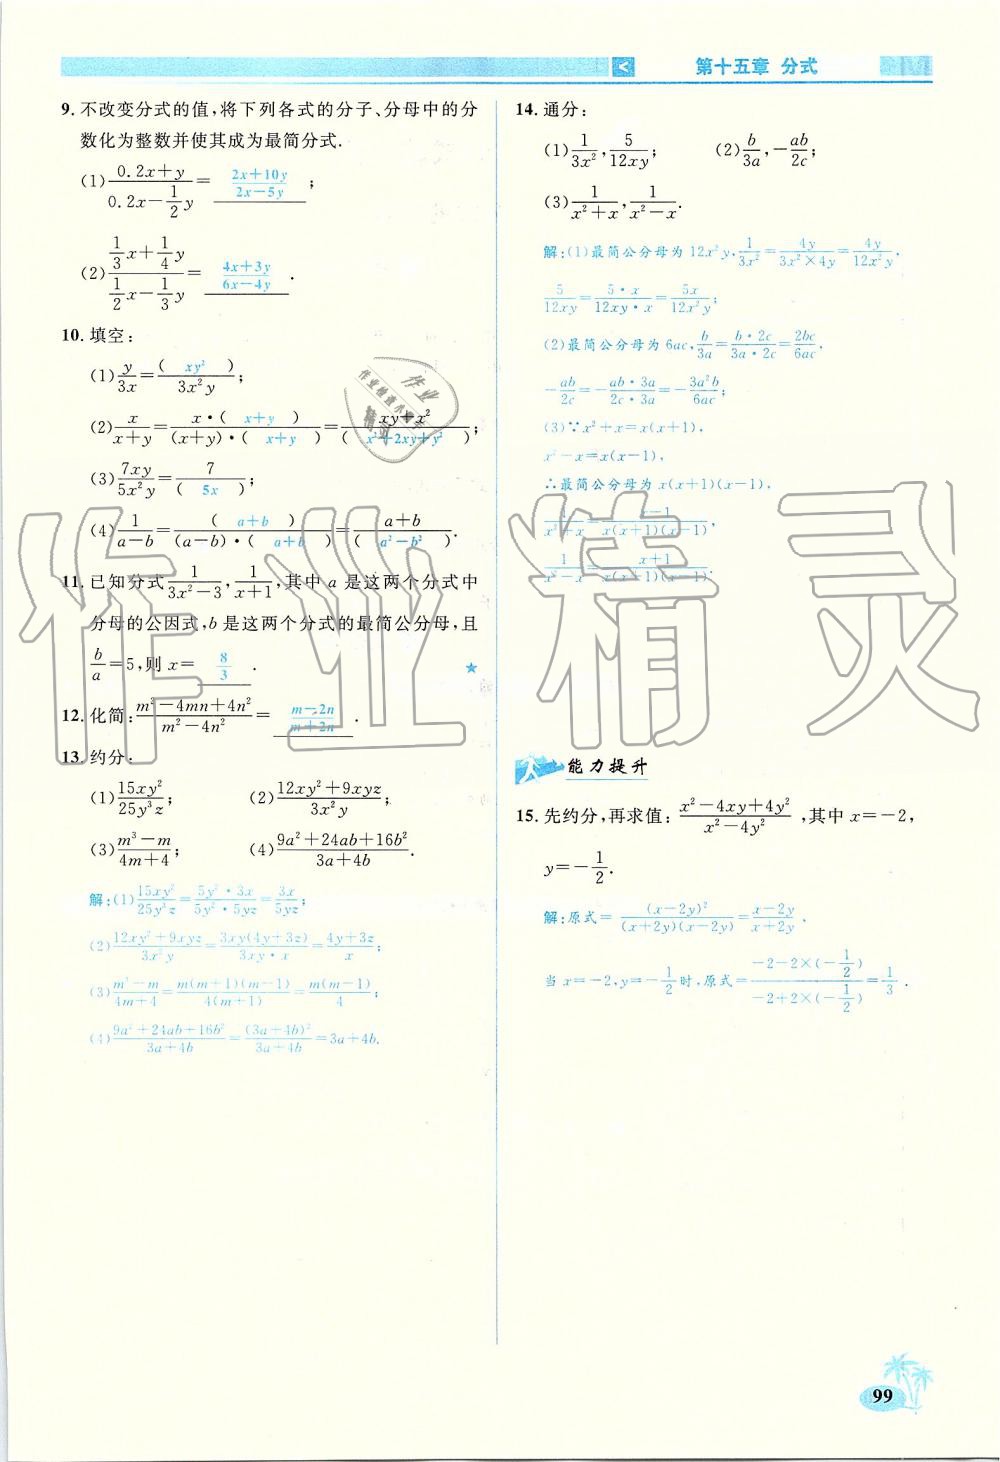 第十五章 分式
9. 不改变分式的值,将下列各式的分子、分母中的分
数化为整数并使其成为最简分式.
(1) \frac{0.2x+y}{0.2x-\frac{1}{2}y} = \frac{2x+10y}{2x-5y} ;
(2) \frac{\frac{1}{3}x+\frac{1}{4}y}{\frac{1}{2}x-\frac{1}{3}y} = \frac{4x+3y}{6x-4y} .
10. 填空:
(1) \frac{y}{3x} = \frac{( xy^2 )}{3x^2y} ;
(2) \frac{x}{x+y} = \frac{x·( x+y )}{(x+y)·( x+y )} = \frac{xy+x^2}{( x^2+2xy+y^2 )} ;
(3) \frac{7xy}{5x^2y} = \frac{7}{( 5x )} ;
(4) \frac{1}{a-b} = \frac{( a+b )}{(a-b)·( a+b )} = \frac{a+b}{( a^2-b^2 )} .
11. 已知分式 \frac{1}{3x^2-3}, \frac{1}{x+1},其中 a 是这两个分式中
分母的公因式,b 是这两个分式的最简公分母,且
\frac{b}{a}=5,则 x= \frac{8}{3} .
12. 化简: \frac{m^2-4mn+4n^2}{m^2-4n^2} = \frac{m-2n}{m+2n} .
13. 约分:
(1) \frac{15xy^2}{25y^3z} ; (2) \frac{12xy^2+9xyz}{3x^2y} ;
(3) \frac{m^3-m}{4m+4} ; (4) \frac{9a^2+24ab+16b^2}{3a+4b} .
解:(1) \frac{15xy^2}{25y^3z} = \frac{5y^2·3x}{5y^2·5yz} = \frac{3x}{5yz} ;
(2) \frac{12xy^2+9xyz}{3x^2y} = \frac{3xy(4y+3z)}{3xy·x} = \frac{4y+3z}{x}
(3) \frac{m^3-m}{4m+4} = \frac{m(m+1)(m-1)}{4(m+1)} = \frac{m(m-1)}{4} ;
(4) \frac{9a^2+24ab+16b^2}{3a+4b} = \frac{(3a+4b)^2}{3a+4b} = 3a+4b.
14. 通分:
(1) \frac{1}{3x^2}, \frac{5}{12xy} ; (2) \frac{b}{3a}, -\frac{ab}{2c} ;
(3) \frac{1}{x^2+x}, \frac{1}{x^2-x} .
解:(1)最简公分母为 12x^2y, \frac{1}{3x^2} = \frac{4y}{3x^2×4y} = \frac{4y}{12x^2y},
\frac{5}{12xy} = \frac{5·x}{12xy·x} = \frac{5x}{12x^2y} ;
(2)最简公分母为 6ac, \frac{b}{3a} = \frac{b·2c}{3a·2c} = \frac{2bc}{6ac},
-\frac{ab}{2c} = -\frac{ab·3a}{2c·3a} = -\frac{3a^2b}{6ac} ;
(3)∵x^2+x=x(x+1),
x^2-x=x(x-1),
∴最简公分母为 x(x+1)(x-1),
\frac{1}{x^2+x} = \frac{x-1}{x(x+1)(x-1)},
\frac{1}{x^2-x} = \frac{x+1}{x(x+1)(x-1)} .
能力提升
15. 先约分,再求值: \frac{x^2-4xy+4y^2}{x^2-4y^2} ,其中 x=-2,
y=-\frac{1}{2}.
解:原式= \frac{(x-2y)^2}{(x+2y)(x-2y)} = \frac{x-2y}{x+2y} .
当 x=-2,y=-\frac{1}{2}时,原式= \frac{-2-2×(-\frac{1}{2})}{-2+2×(-\frac{1}{2})} = \frac{1}{3} .
99
作业精灵